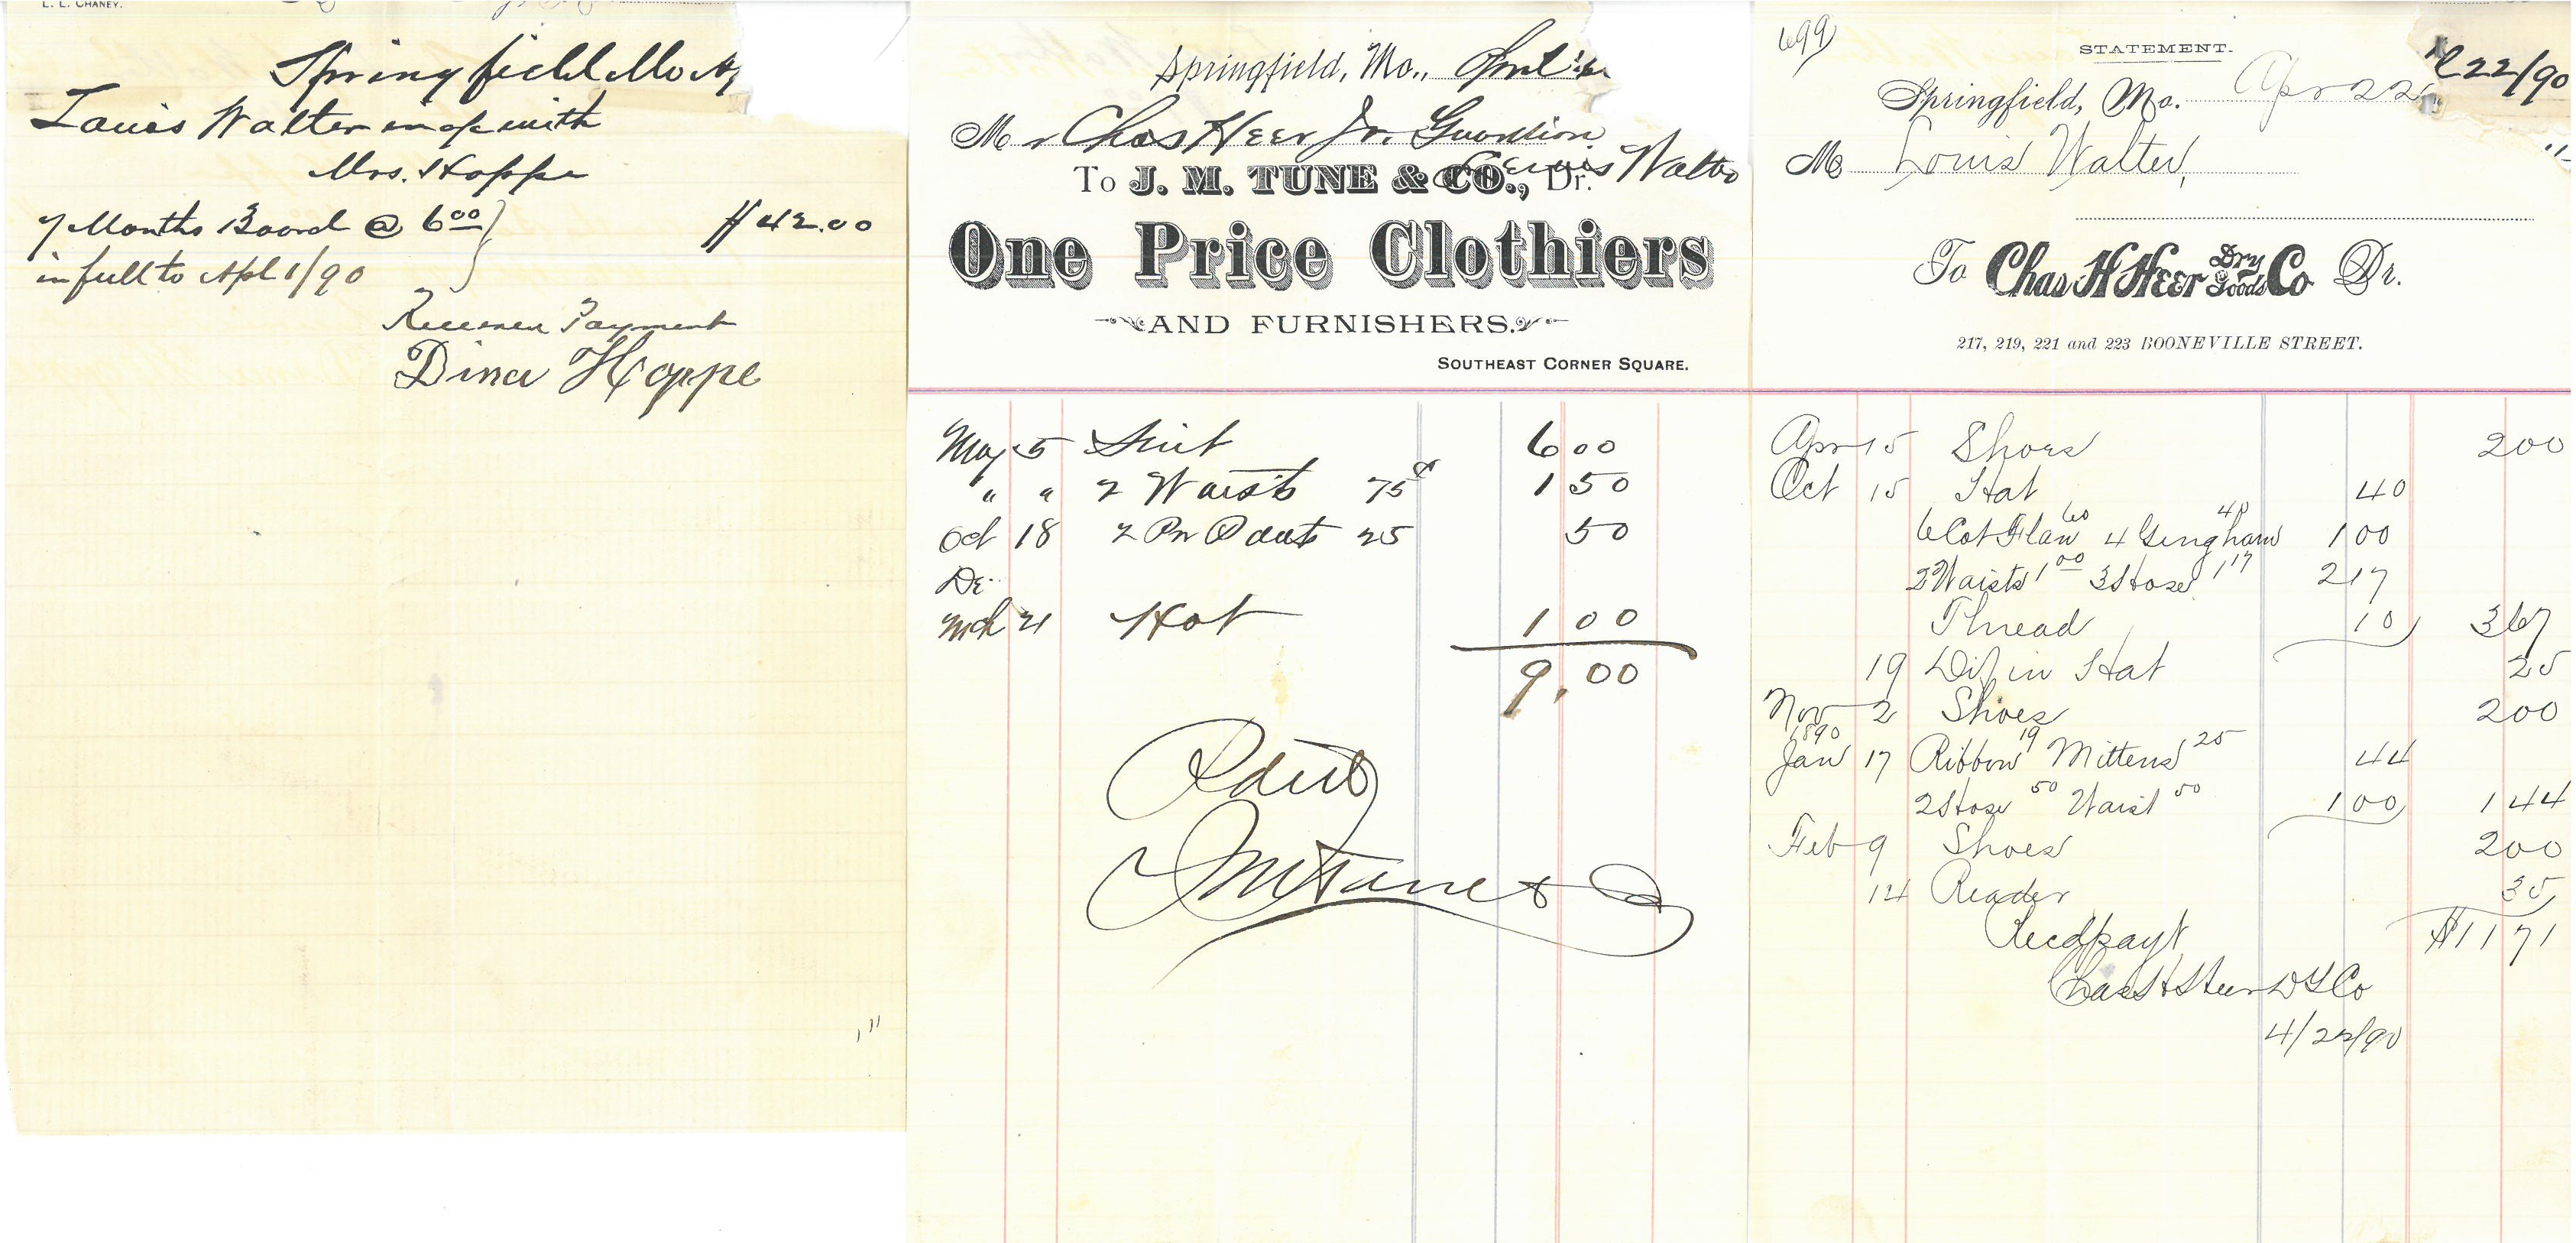 L. L. CHANEY.
Springfield Mo
Louis Walter in a/c with
Mrs. Hoppe
7 Months Board @ 6 00
$ 42.00
in full to Apl 1/90
Received Payment
Dina Hoppe
Springfield, Mo., April
Mr Chas Heer Jr. Guardian
Lewis Walter
To J. M. TUNE & CO., Dr.
One Price Clothiers
AND FURNISHERS.
SOUTHEAST CORNER SQUARE.
May 5 Suit 6 00
" " 2 Waists 75¢ 1 50
Oct 18 2 Pr 25 50
De
Mch 21 Hat 1 00
9.00
699
STATEMENT.
Springfield, Mo. Apr 22
22/90
M Louis Walter,
To Chas H Heer Dry Goods Co Dr.
217, 219, 221 and 223 BOONEVILLE STREET.
Apr 15 Shoes 200
Oct 15 Hat 40
6 Cot Flan 60 4 Gingham 40 1 00
2 Waists 1 00 3 Hose 1 17 2 17
Thread 10 3 67
19 Dif in Hat 25
Nov 2 Shoes 200
1890
Jan 17 Ribbon 19 Mittens 25 44
2 Hose 50 Waist 50 1 00 1 44
Feb 9 Shoes 200
14 Reader 35
$11 71
Recd payt
Chas H Heer D G Co
4/22/90